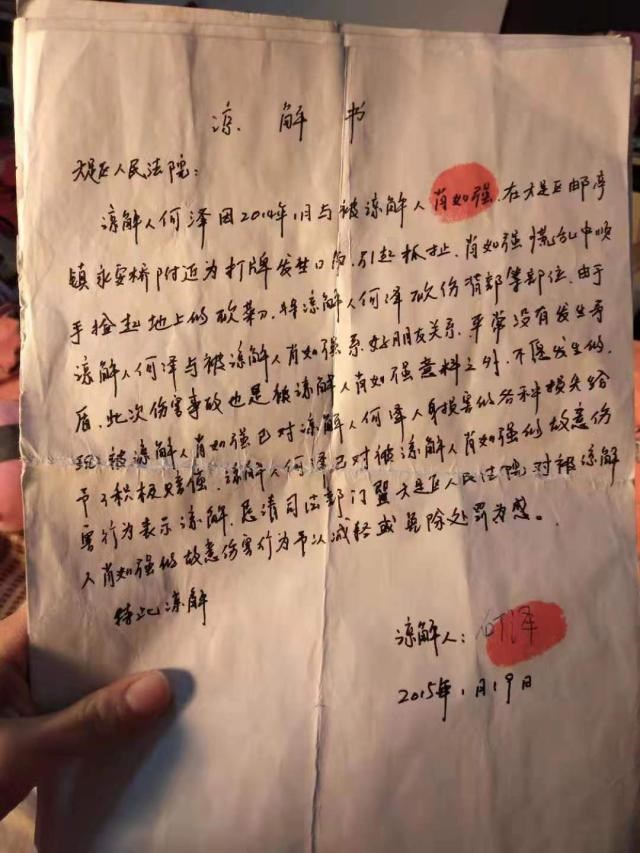 谅解书
大足区人民法院:
谅解人何泽因2014年1月与被谅解人肖如强,在大足区邮亭
镇永安桥附近为打牌发生口角,引起抓扯,肖如强慌乱中顺
手捡起地上的砍草刀,将谅解人何泽砍伤背部等部位。由于
谅解人何泽与被谅解人肖如强系好朋友关系,平常没有发生矛
盾,此次伤害事故也是被谅解人肖如强意料之外,不愿发生的。
现被谅解人肖如强已对谅解人何泽人身损害的各种损失给
予了积极赔偿,谅解人何泽已对被谅解人肖如强的故意伤
害行为表示谅解,恳请司法部门暨大足区人民法院对被谅解
人肖如强的故意伤害行为予以减轻或免除处罚为感。
特此谅解
谅解人:何泽
2015年1月19日